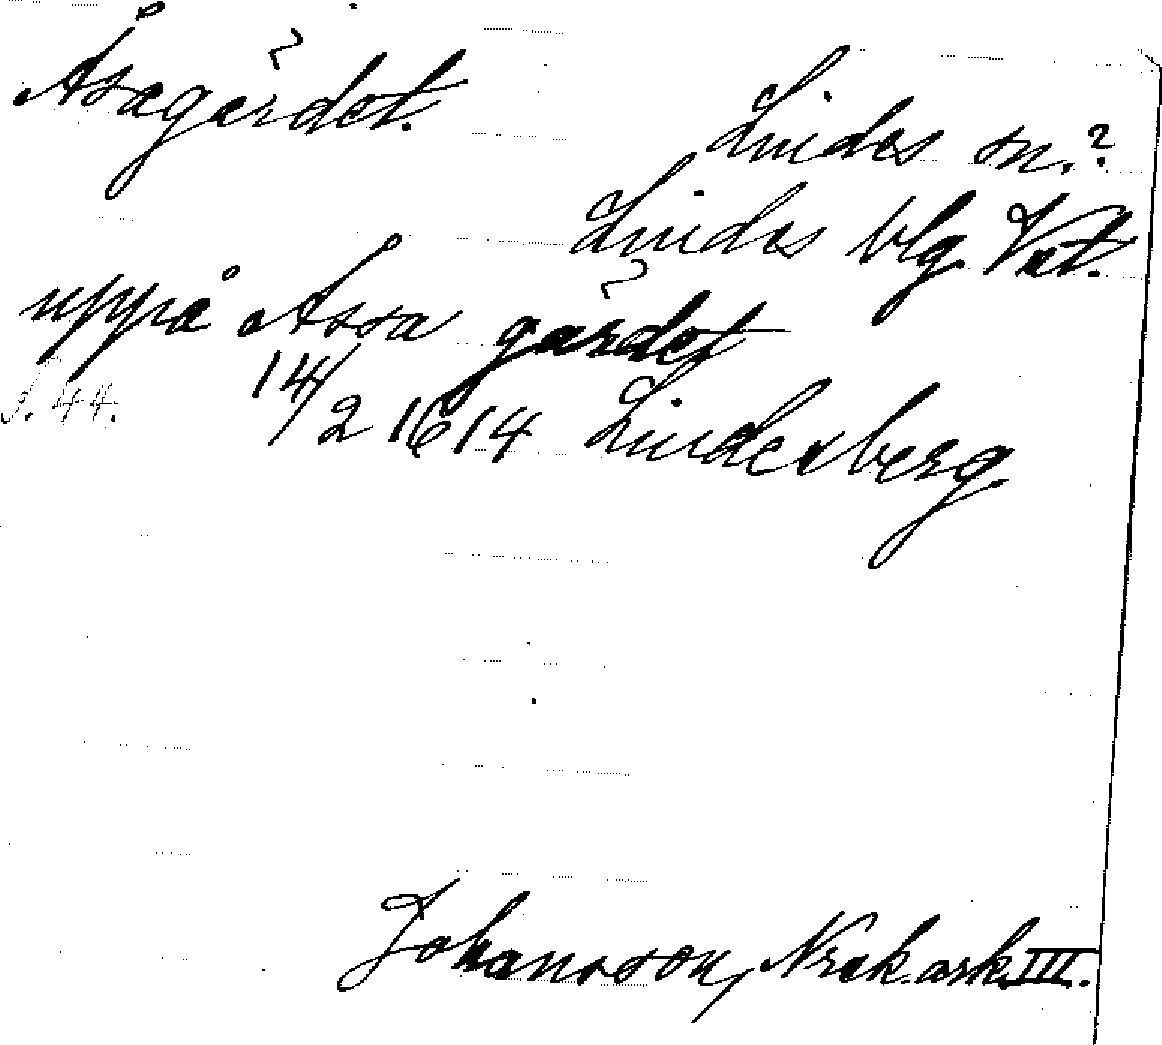 Åsagärdet.
Lindes sn.?
Lindes blg. Vät.
uppå Åssa gärdet
S. 44. 14/2 1614 Lindesberg
Johansson, Nrak. ark. III.